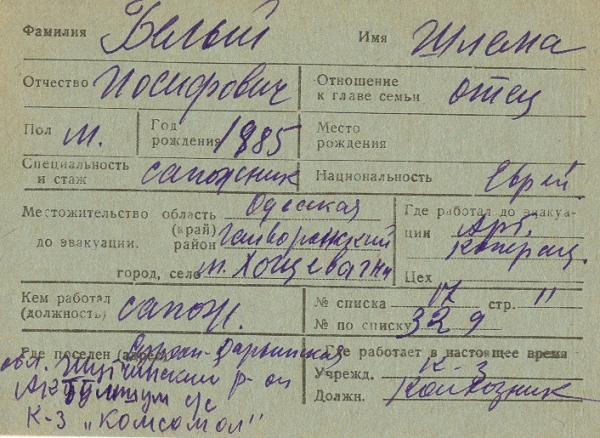 Фамилия Белый Имя Шлема
Отчество Иосифович Отношение к главе семьи отец
Пол м. Год рождения 1885 Место рождения
Специальность и стаж сапожник Национальность еврей.
Местожительство область Одесская Где работал до эвакуа-
(край) ции Арт.
до эвакуации. район Гайворонский коперац.
город, село м. Хощевати Цех
Кем работал (должность) сапож. № списка 17 стр. "
№ по списку 329
Где поселен (адрес) Сурхан-Дарьинская Где работает в настоящее время
обл. р-он Учрежд. К-З
с/с Должн. Колхозник
К-З „Комсомол"